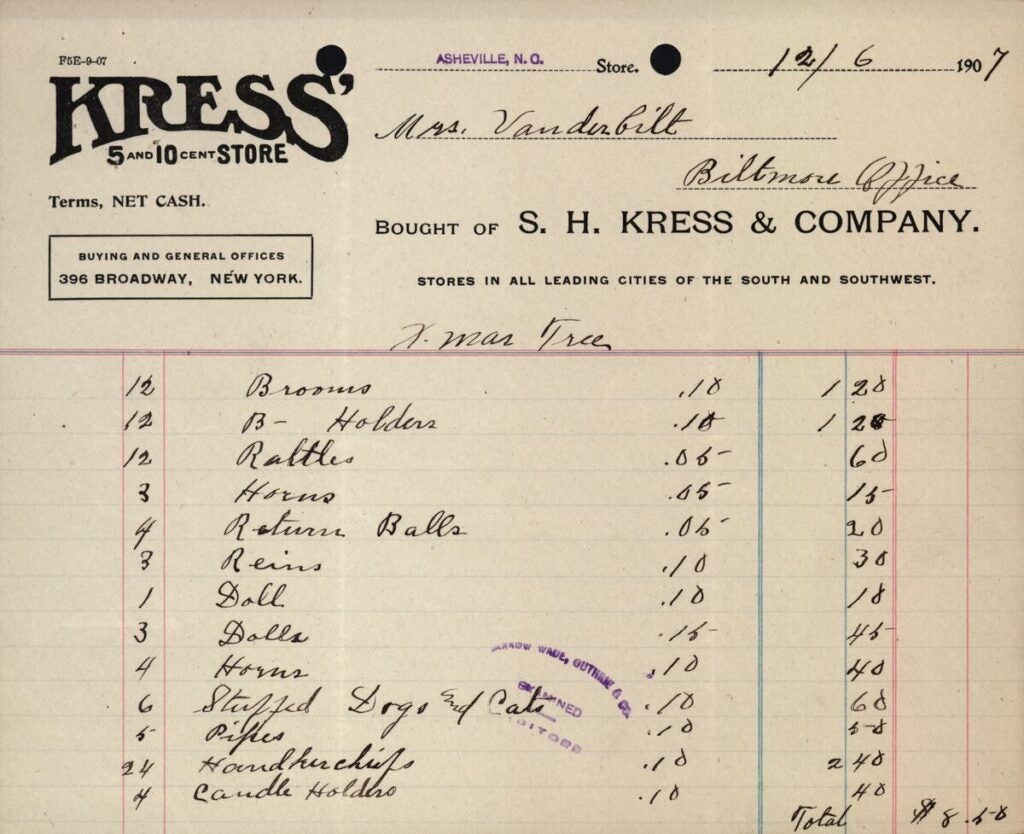 F5E-9-07
KRESS'
5 AND 10 CENT STORE
ASHEVILLE, N. C. Store. 12/6 1907
Mrs. Vanderbilt
Biltmore Office
Terms, NET CASH.
BOUGHT OF S. H. KRESS & COMPANY.
BUYING AND GENERAL OFFICES
396 BROADWAY, NEW YORK.
STORES IN ALL LEADING CITIES OF THE SOUTH AND SOUTHWEST.
X-mas Tree
12 Brooms .10 1 20
12 B- Holders .10 1 20
12 Rattles .05 60
3 Horns .05 15
4 Return Balls .05 20
3 Reins .10 30
1 Doll .10 10
3 Dolls .15 45
4 Horns .10 40
6 Stuffed Dogs and Cats .10 60
5 Pipes .10 50
24 Handkerchiefs .10 2 40
4 Candle Holders .10 40
Total $8.50
BARROW WADE, GUTHRIE & CO.
EXAMINED
AUDITORS